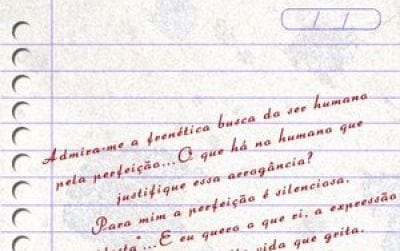 Admira-me a frenética busca do ser humano
pela perfeição...O que há no humano que
justifique essa arrogância?
Para mim a perfeição é silenciosa.
...E eu quero o que ri, a expressão
vida que grita.